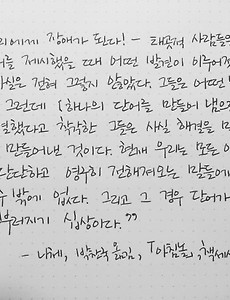 리에게 장애가 된다! - 태곳적 사람들은
어를 제시했을 때 어떤 발견이 이루어졌
사실은 전혀 그렇지 않았다. 그들은 어떤 
그런데 (하나의 단어를 만들어 냄으로
결했다고 착각한 그들은 사실 해결을 
만들어낸 것이다. 현재 우리는 모든 
단단하고 영구히 전해져오는 말들에
수 밖에 없다. 그리고 그 경우 단어가
부러지기 십상이다."
- 니체, 박찬국 옮김, 「아침놀」, 책세